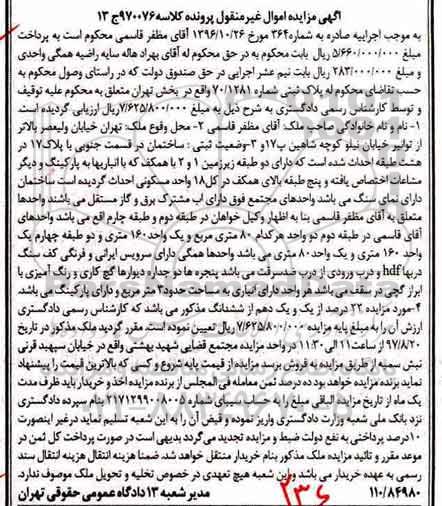 آگهی مزایده اموال غیرمنقول پرونده کلاسه ۹۷۰۰۷۶ج ۱۳
به موجب اجراییه صادره به شماره۳۶۴ مورخ ۱۳۹۶/۱۰/۲۶ آقای مظفر قاسمی محکوم است به پرداخت
مبلغ ۵/۶۶۰/۰۰۰/۰۰۰ ریال بابت محکوم به در حق محکوم له آقای بهراد هاله سایه راضیه همگی واحدی
و مبلغ ۲۸۳/۰۰۰/۰۰۰ ریال بابت نیم عشر اجرایی در حق صندوق دولت که در راستای وصول محکوم به
حسب تقاضای محکوم له پلاک ثبتی شماره ۷۰/۱۲۸۱ واقع در بخش تهران متعلق به محکوم علیه توقیف
و توسط کارشناس رسمی دادگستری به شرح ذیل به مبلغ ۷/۶۲۵/۸۰۰/۰۰۰ریال ارزیابی گردیده است.
۱- نام و نام خانوادگی صاحب ملک: آقای مظفر قاسمی ۲- محل وقوع ملک: تهران خیابان ولیعصر بالاتر
از توانیر خیابان نیلو کوچه شاهین پ۱۷ و ۳-وضعیت ثبتی : ساختمان در قسمت جنوبی با پلاک۱۷ در
هشت طبقه احداث شده است که دارای دو طبقه زیرزمین ۱ و ۲ با همکف که با انباریها به پارکینگ و دیگر
مشاعات اختصاص یافته و پنج طبقه بالای همکف در کل۱۸ واحد مسکونی احداث گردیده است ساختمان
دارای نمای سنگ می باشد واحدهای مجتمع فوق دارای اب مشترک برق و گاز مستقل می باشند واحدها
متعلق به آقای مظفر قاسمی بنا به اظهار وکیل خواهان در طبقه دوم و طبقه چارم اقع می باشد واحدهای
آقای قاسمی در طبقه دوم دو واحد هرکدام ۸۰ متری مربع و یک واحد ۱۶۰ متری و دو طبقه چهارم یک
واحد ۱۶۰ متری و یک واحد ۸۰ متری می باشد واحدها همگی دارای سرویس ایرانی و فرنگی کف سنگ
دربها hdf و درب ورودی از درب ضدسرقت می باشد پنجره ها دو جداره دیوارها گچ کاری و رنگ آمیزی با
ابراز گچی در سقف می باشد هر واحد دارای انباری به مساحت حدود۳ متر مربع و دارای پارکینگ می باشد.
۴-مورد مزایده ۲۲ درصد از یک و یک دهم از ششدانگ مذکور می باشد که کارشناس رسمی دادگستری
ارزش آن را به مبلغ پایه مزایده ۷/۶۲۵/۸۰۰/۰۰۰ ریال تعیین نموده است. مقرر گردید ملک مذکور در تاریخ
۹۷/۸/۲۰ از ساعت۱۱ الی ۱۱:۳۰ در واحد مزایده مجتمع قضایی شهید بهشتی واقع در خیابان سپهبد قرنی
نبش سمیه از طریق مزایده به فروش برسد. مزایده از قیمت پایه شروع و کسی که بالاترین قیمت را پیشنهاد
نماید برنده مزایده خواهد بود ده درصد ثمن معامله فی المجلس از برنده مزایده اخذ و خریدار باید ظرف مدت
یک ماه از تاریخ مزایده الباقی مبلغ را به حساب سپای شماره ۲۱۷۱۲۹۹۰۸۰۰۵ بنام سپرده دادگستری
نزد بانک ملی شعبه وزارت دادگستری واریز نموده و قبض آن را به این شعبه تسلیم نماید درغیر اینصورت
۱۰درصد پرداختی به نفع دولت ضبط و مزایده تجدید می گردد بدیهی است در صورت پرداخت کل ثمن در
موعد مقرر و تائید مزایده ملک مذکور بنام خریدار منتقل خواهد شد. ضمنا هزینه انتقال هزینه انتقال سند
رسمی به عهده خریدار می باشد واین شعبه هیچ تعهدی در خصوص تخلیه و تحویل ملک موصوف ندارد.
۱۱۰/۸۴۹۸۰ مدیر شعبه ۱۳ دادگاه عمومی حقوقی تهران